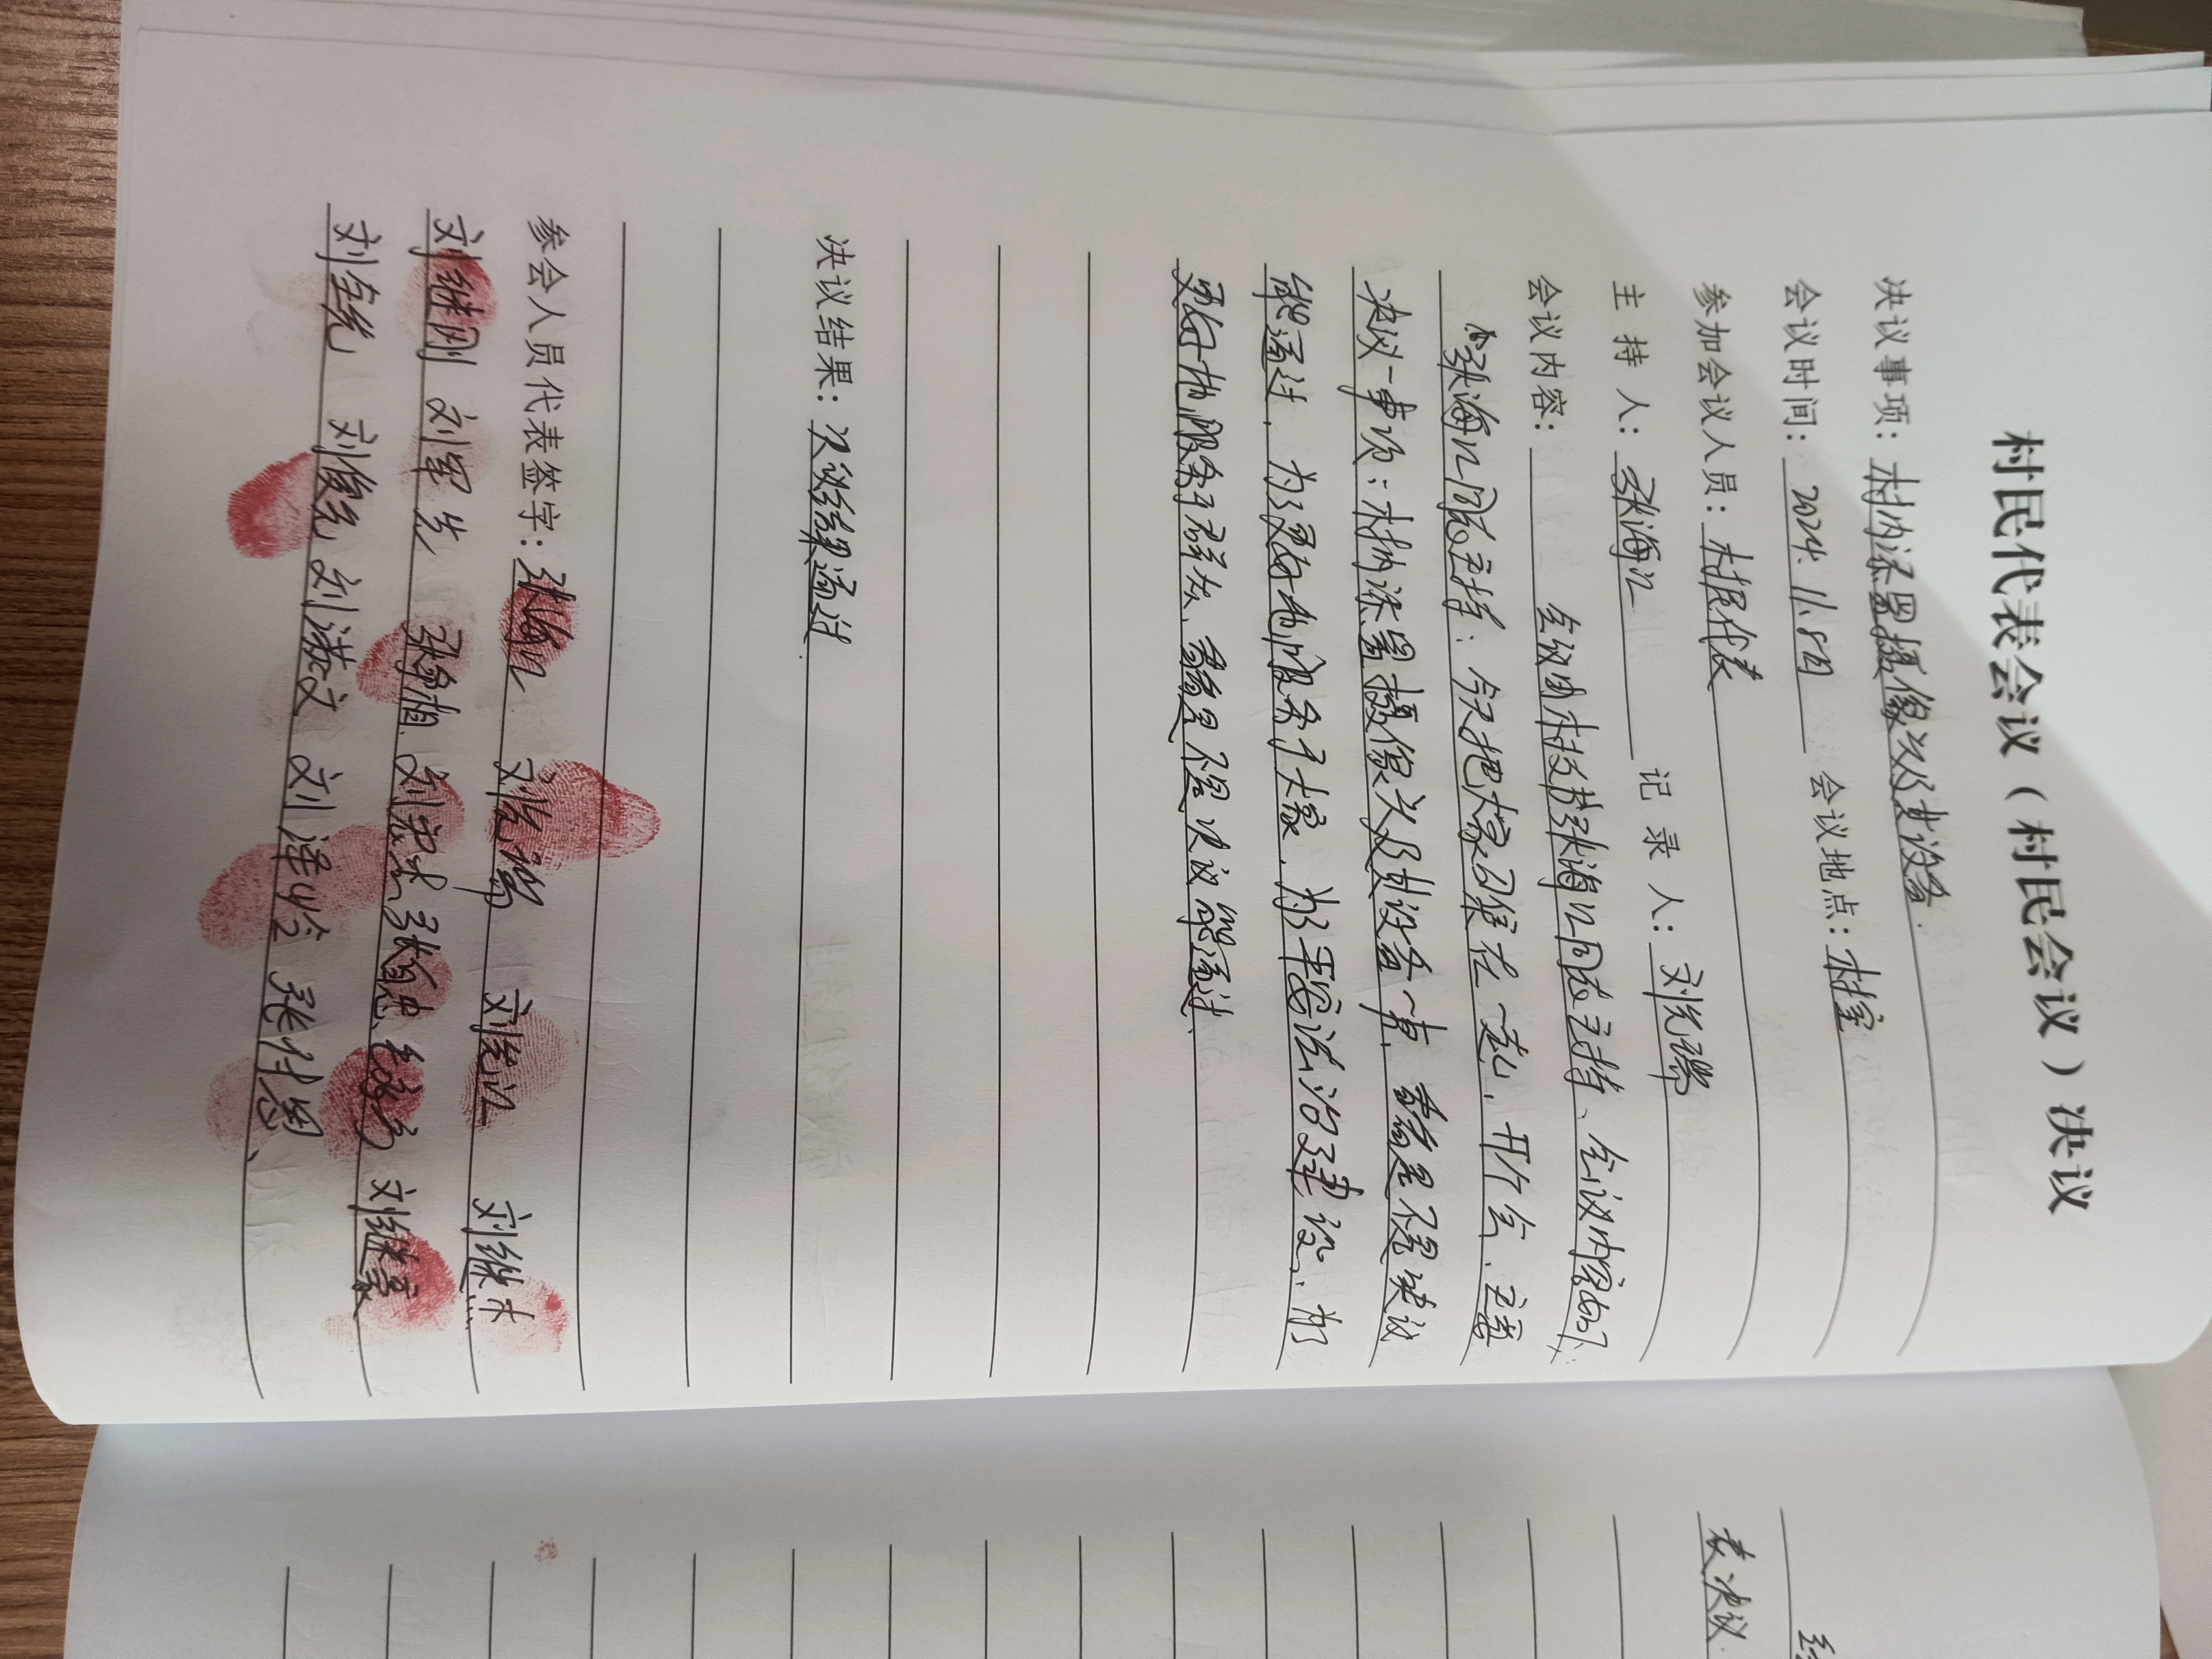 村民代表会议（村民会议）决议
决议事项：村内添置摄像头及其设备.
会议时间：2024.11.8日 会议地点：村室
参加会议人员：村民代表
主持人：张海江 记录人：刘先瑞
会议内容：会议由村支书张海江同志主持、会议内容如下：
张海江同志主持：今天把大家召集在一起，开个会，主要
决议一事项：村内添置摄像头及其设备一事，看看是不是决议
能通过，为了更好地服务于大家，为了平安法治建设，为了
更好地服务于群众，看看是不是决议能通过.
决议结果：决议结果通过.
参会人员代表签字：张海江 刘先瑞 刘先江 刘继杰
刘继刚 刘军先 张争相 刘宪杰 张自忠 刘继豪
刘全先 刘俊先 刘洪文 刘泽岭 张付恩、
表决议.